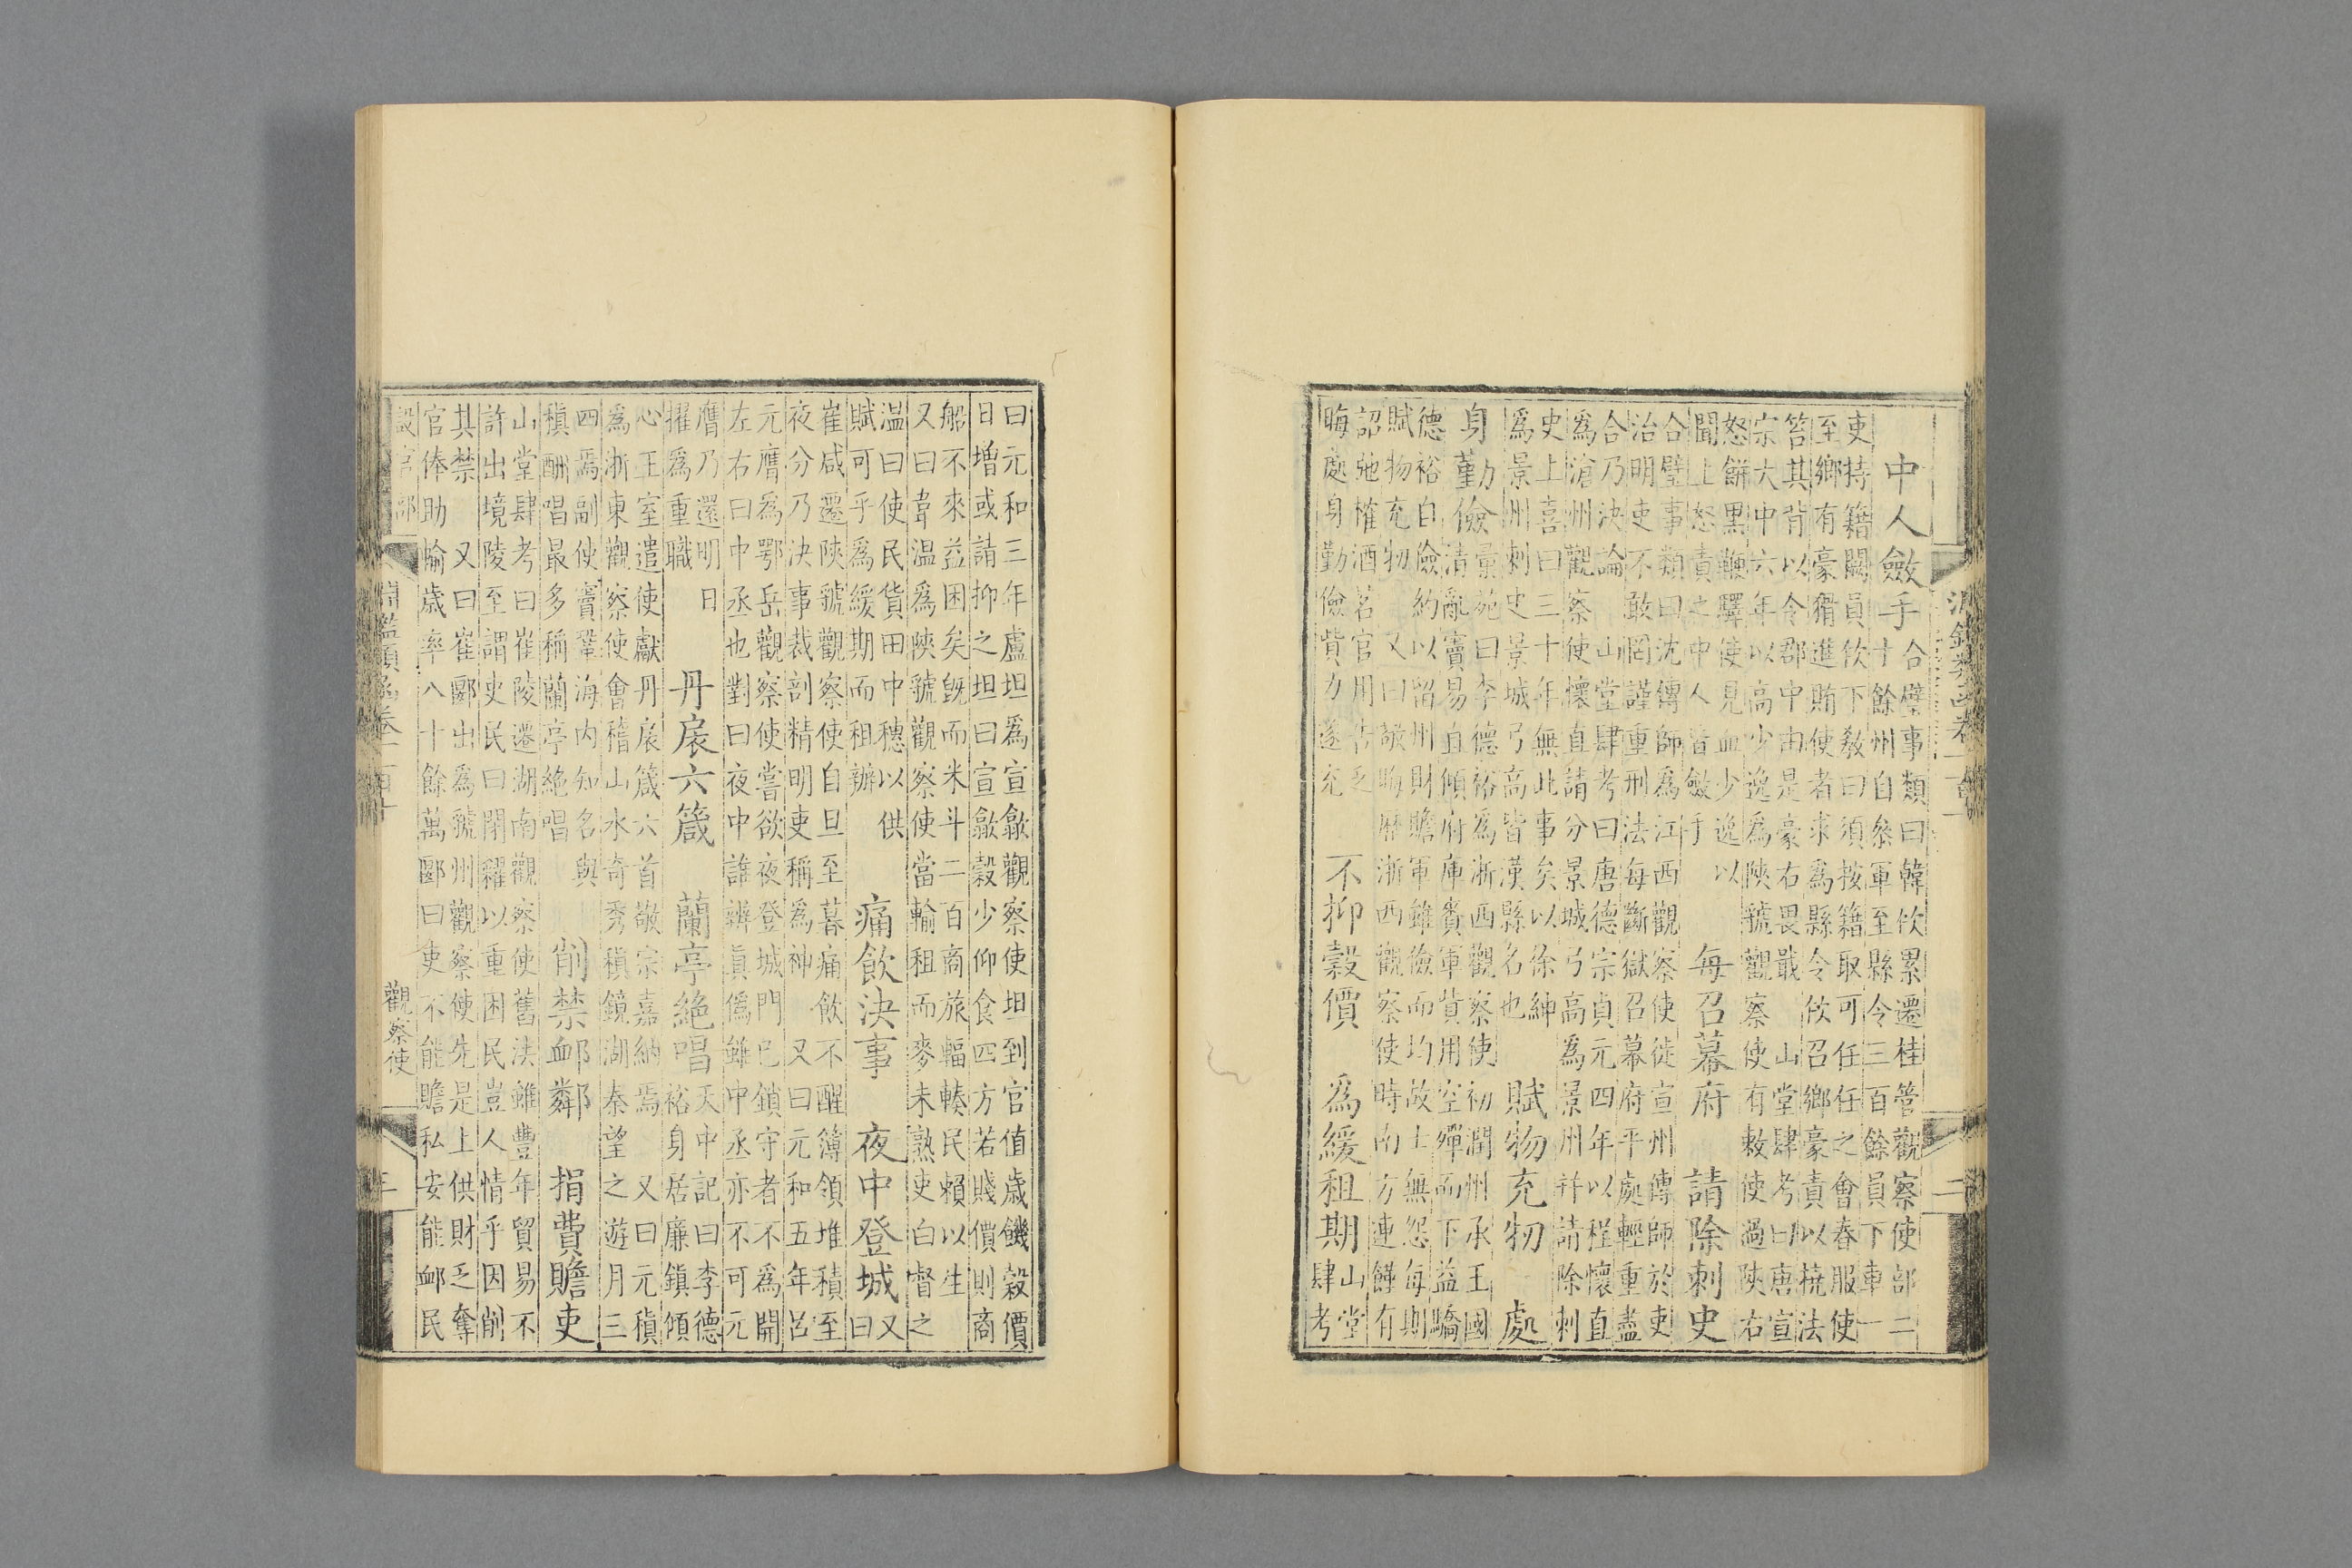 淵鑑類函卷一百十 二
中人斂手
合璧事類曰韓佽累遷桂管觀察使部二
十餘州自參軍至縣令三百餘員下車一
吏持籍闕員佽下敎曰須按籍取可任任之會春服使
至鄉有豪猾進賄使者求爲縣令佽召鄉豪責以撓法
笞其背以令郡中由是豪右畏戢 山堂肆考曰唐宣
宗大中六年以高少逸爲陝虢觀察使有敕使過陝右
怒餅黑鞭驛使見血少逸以
聞上怒責之中人皆斂手
每召幕府 請除刺史
合璧事類曰沈傳師爲江西觀察使徙宣州傳師於吏
治明吏不敢罔謹重刑法每斷獄召幕府平處輕重盡
合乃決論 山堂肆考曰唐德宗貞元四年以程懷直
爲滄州觀察使懷直請分景城弓高爲景州幷請除刺
史上喜曰三十年無此事矣以徐紳
爲景州刺史景城弓高皆漢縣名也
賦物充物 處
身勤儉
曰李德裕爲浙西觀察使初潤州承王國
清亂竇易直傾府庫賚軍貲用空殫而下益驕
德裕自儉約以留州財贍軍雖儉而均故士無怨每期
賦物充物 又曰敬晦歷浙西觀察使時南方連饉有
詔弛榷酒茗官用告乏
晦處身勤儉貲力遂充
不抑穀價 爲緩租期
山堂
肆考
曰元和三年盧坦爲宣歙觀察使坦到官值歲饑穀價
日增或請抑之坦曰宣歙穀少仰食四方若賤價則商
船不來益困矣旣而米斗二百商旅輻輳民賴以生
又曰韋溫爲陝虢觀察使當輸租而麥未熟吏白督之
温曰使民貨田中穗以供
賦可乎爲緩期而租辦
痛飮決事 夜中登城
又
曰
崔咸遷陝虢觀察使自旦至暮痛飮不醒簿領堆積至
夜分乃決事裁剖精明吏稱爲神 又曰元和五年呂
元膺爲鄂岳觀察使嘗欲夜登城門已鎖守者不爲開
左右曰中丞也對曰夜中誰辨眞僞雖中丞亦不可元
膺乃還明日
擢爲重職
丹扆六箴 蘭亭絶唱
天中記曰李德
裕身居廉鎮傾
心王室遣使獻丹扆箴六首敬宗嘉納焉 又曰元稹
爲浙東觀察使會稽山水奇秀稹鏡湖秦望之遊月三
四焉副使竇鞏海内知名與
稹酬唱最多稱蘭亭絶唱
削禁卹鄰 捐費贍吏
山堂肆考曰崔陵遷湖南觀察使舊法雖豐年貿易不
許出境陵至謂吏民曰閉糴以重困民豈人情乎因削
其禁 又曰崔郾出爲虢州觀察使先是上供財乏奪
官俸助輸歲率八十餘萬郾曰吏不能贍私安能卹民
設官部 淵鑑類函卷一百十 觀察使 三